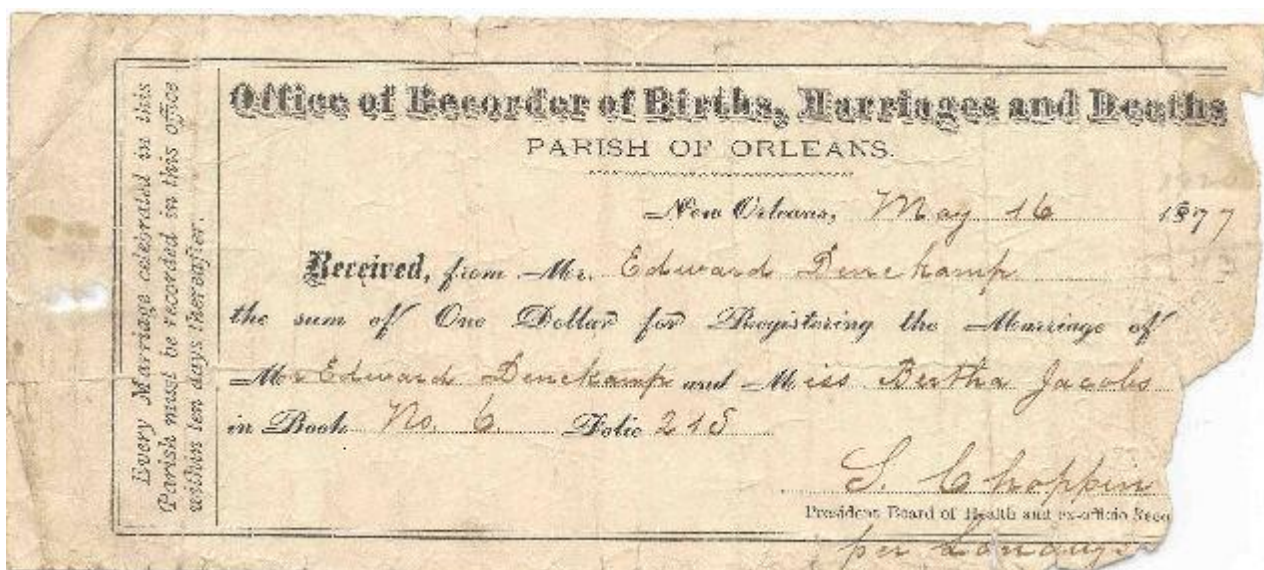 Every Marriage celebrated in this
Parish must be recorded in this office
within ten days thereafter.
Office of Recorder of Births, Marriages and Deaths
PARISH OF ORLEANS.
New Orleans, May 16 1877
Received, from Mr. Edward Denekamp
the sum of One Dollar for Registering the Marriage of
Mr Edward Denekamp and Miss Bertha Jacobs
in Book No. 6 Folio 215
S. Choppin
President Board of Health and ex-officio Reco
per